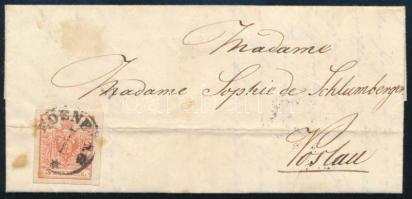 Madame
Madame Sophie de Schlumberger
Vöslau